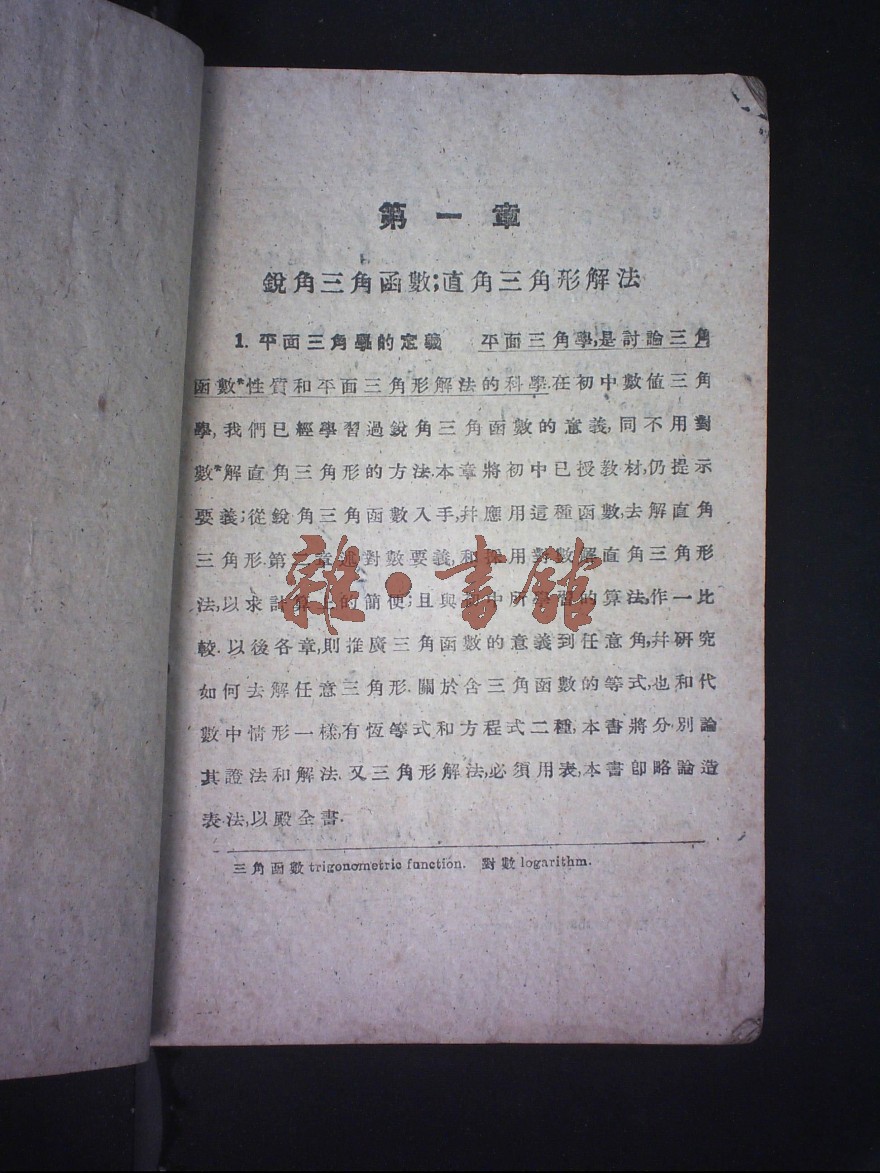 第一章
銳角三角函數;直角三角形解法
1. 平面三角學的定義　平面三角學,是討論三角
函數*性質和平面三角形解法的科學.在初中數值三角
學,我們已經學習過銳角三角函數的意義,同不用對
數*解直角三角形的方法.本章將初中已授教材,仍提示
要義;從銳角三角函數入手,幷應用這種函數,去解直角
三角形.第二章述對數要義,和採用對數解直角三角形
法,以求計算上的簡便;且與初中所學習的算法,作一比
較.以後各章,則推廣三角函數的意義到任意角,幷研究
如何去解任意三角形.關於含三角函數的等式,也和代
數中情形一樣,有恆等式和方程式二種,本書將分別論
其證法和解法.又三角形解法,必須用表,本書卽略論造
表法,以殿全書.
三角函數 trigonometric function.　對數 logarithm.
雜·書館